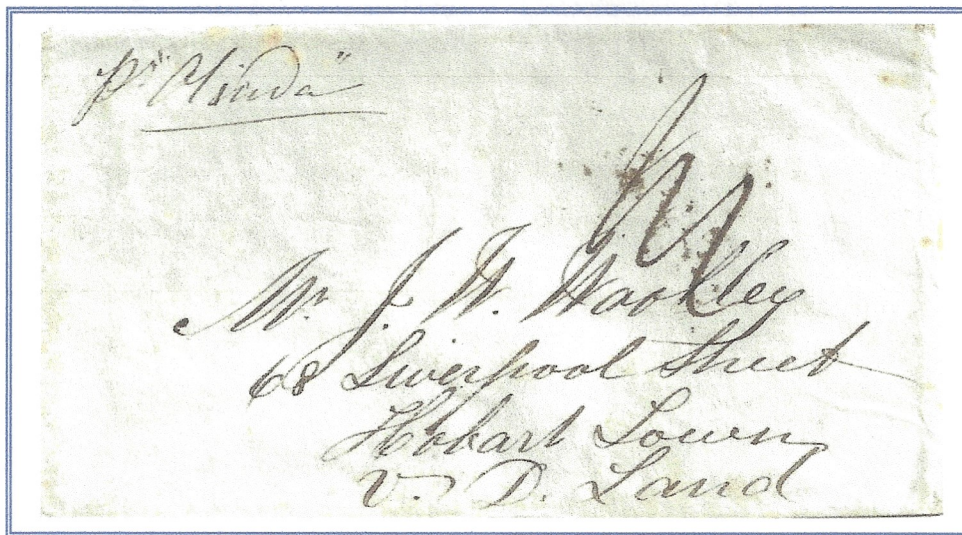 Pr "Olinda"
Mr. J. W. Woolley
68 Liverpool Street
Hobart Town
V. D. Land